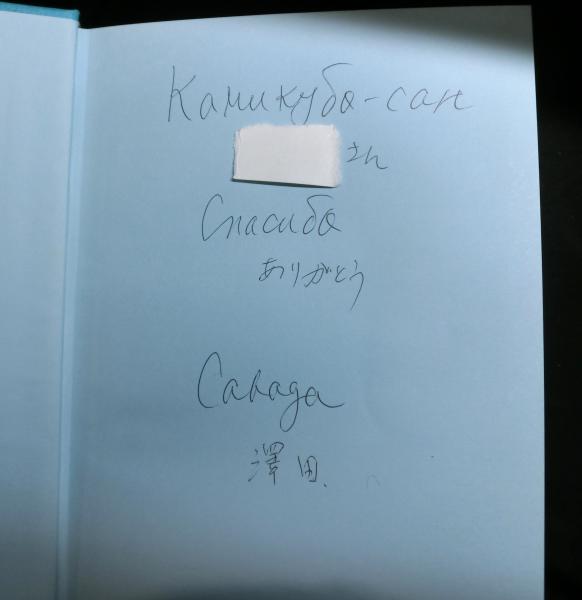 Камикубо-сан
さん
Спасибо
ありがとう
Савада
澤田